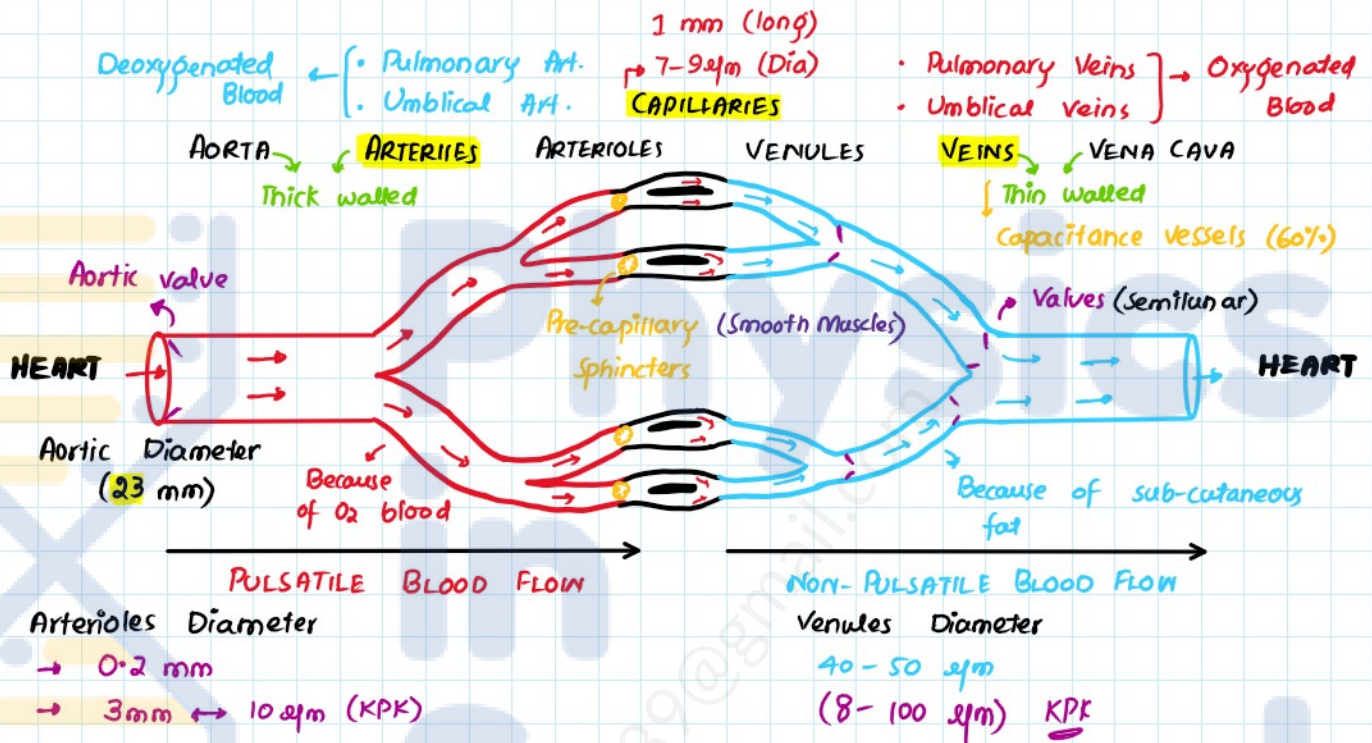 1 mm (long)
7-9 µm (Dia)
CAPILLARIES
Deoxygenated Blood
• Pulmonary Art.
• Umblical Art.
• Pulmonary Veins
• Umblical veins
Oxygenated Blood
AORTA ARTERIES ARTERIOLES VENULES VEINS VENA CAVA
Thick walled
Thin walled
Capacitance vessels (60%)
Aortic valve
Valves (Semilunar)
Pre-capillary (Smooth Muscles)
Sphincters
HEART
HEART
Aortic Diameter
(23 mm)
Because
of O2 blood
Because of sub-cutaneous
fat
PULSATILE BLOOD FLOW
NON-PULSATILE BLOOD FLOW
Arterioles Diameter
→ 0.2 mm
→ 3mm ↔ 10 µm (KPK)
Venules Diameter
40 - 50 µm
(8- 100 µm) KPK
Physics
in
39@gmail.com